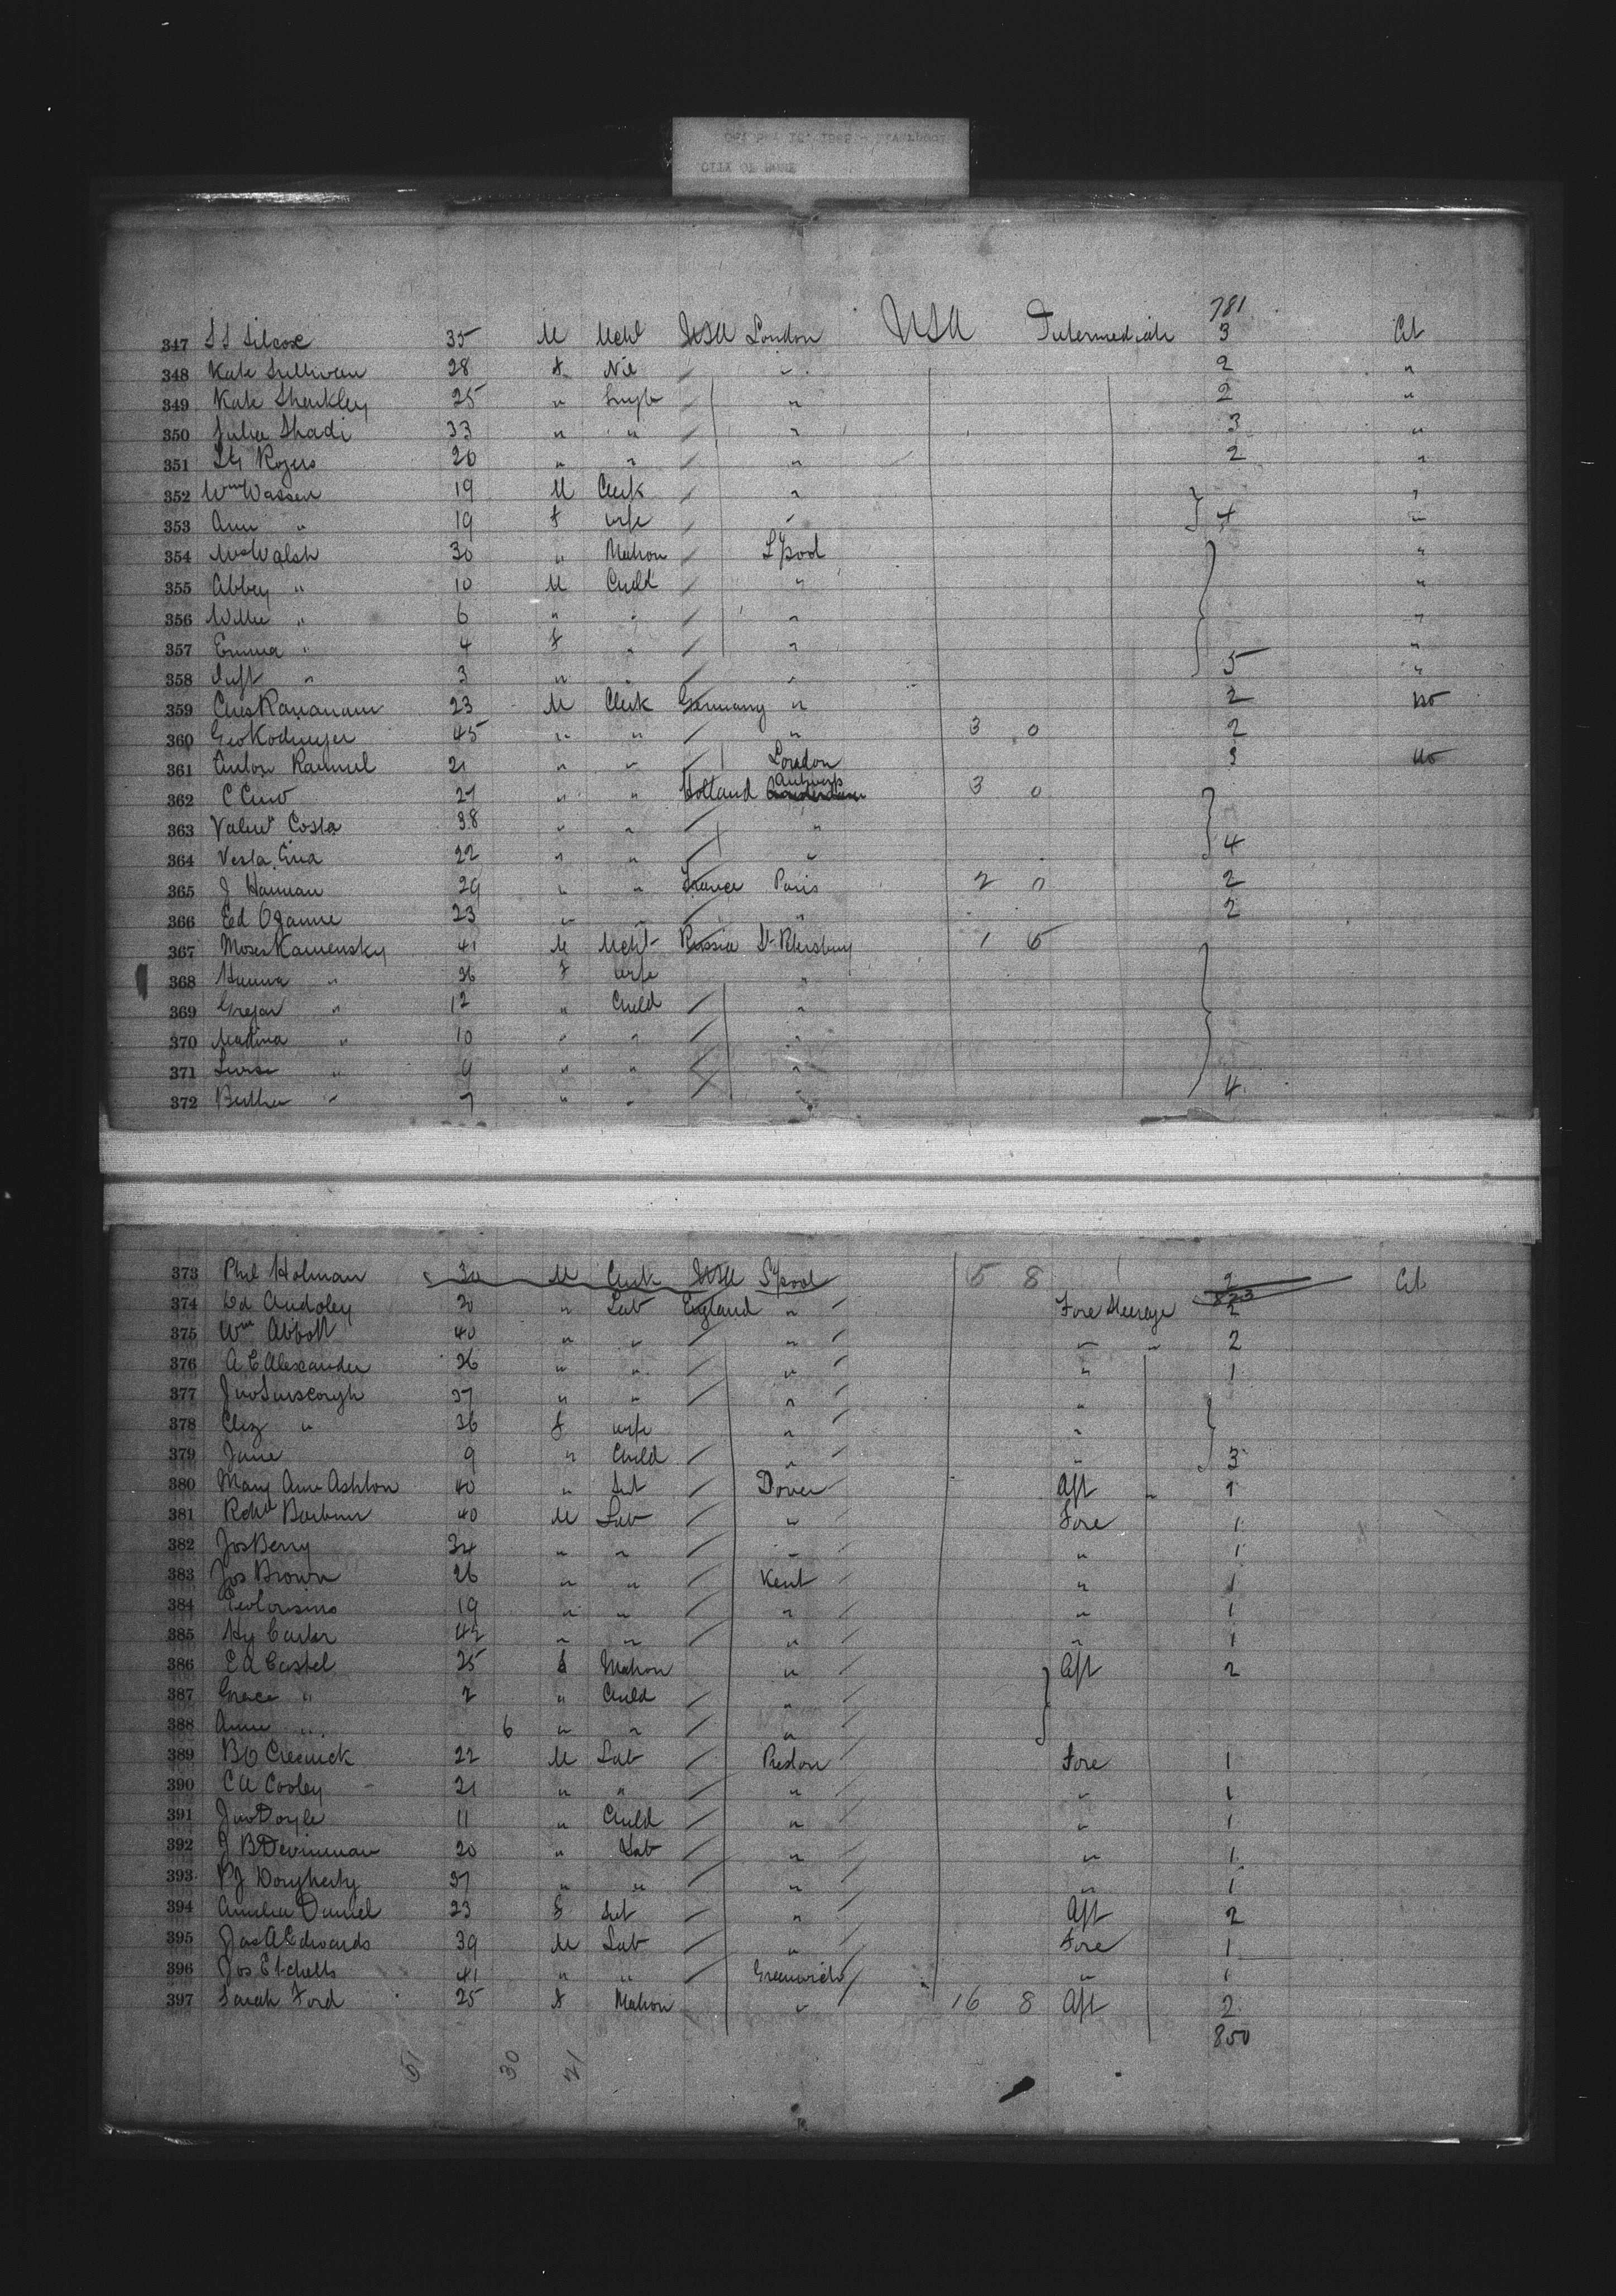 CITY OF ROME
781
347 S S Silcox 35 M Mcht USA London USA Intermediate 3 Cit
348 Kate Sullivan 28 f Nil / " 2 "
349 Kate Sharkley 25 " Single / " 2 "
350 Julia Shadi 33 " " / " 3 "
351 Rogers 20 " " / " 2 "
352 Wm Wassen 19 M Clerk / " "
353 Ann " 19 f wife / " } 4 "
354 Mrs Walsh 30 " Matron / L'pool "
355 Abbey " 10 M Child / " "
356 Willie " 6 " " / " "
357 Emma " 4 f " / " "
358 Inft " 3 " " / " } 5 "
359 Ches 23 M Clerk Germany " 2 no
360 Geo Kodmyer 45 " " / " 3 0 2
361 Anton Rammel 21 " " / London 3 no
362 C 27 " " Holland Antwerp 3 0
363 Costa 38 " " / "
364 Vesta 22 " " / " } 4
365 J Haman 29 " " France Paris 2 0 2
366 Ed Ozanne 23 " " / " 2
367 Moses Kamensky 41 M Mcht Russia St Petersburg 1 5
368 Hanna " 36 f wife "
369 Gregor " 12 " Child / "
370 Madina " 10 " " / "
371 Luise " 9 " " / "
372 Bertha " 7 " " / " } 4
373 Phil Holman 30 M Clerk USA L'pool 5 8 2 Cit
823
374 Ed Audoley 20 " Lab England " / Fore Steerage 2
375 Wm Abbott 40 " " / " / " " 2
376 A E Alexander 26 " " / " / " 1
377 Jno 37 " " / " / "
378 Eliz " 36 f wife " "
379 Jane 9 " Child / " / " } 3
380 Mary Ann Ashton 40 " / Dover / Aft " 1
381 Robt Barbour 40 M Lab / " / Fore 1
382 Jos Berry 34 " " / " / " 1
383 Jos Brown 26 " " / Kent / " 1
384 Geo Cousins 19 " " / " / " 1
385 Hy Carter 42 " " / " / " 1
386 E A Castel 25 f Matron " / Aft 2
387 Grace " 2 " Child / " /
388 Anne " 6 " " / " / }
389 B O Creswick 22 M Lab / Preston / Fore 1
390 C A Cooley 21 " " / " / " 1
391 Jno Doyle 11 " Child / " / " 1
392 J B 20 " Lab / " / " 1
393 P J Dougherty 37 " " / " / " 1
394 Amelia Daniel 23 f / " / Aft 2
395 Jas A Edwards 39 M Lab / " / Fore 1
396 Jos Etchells 41 " " / Greenwich / " 1
397 Sarah Ford 25 f Matron " 16 8 Aft 2
850
51 30 21